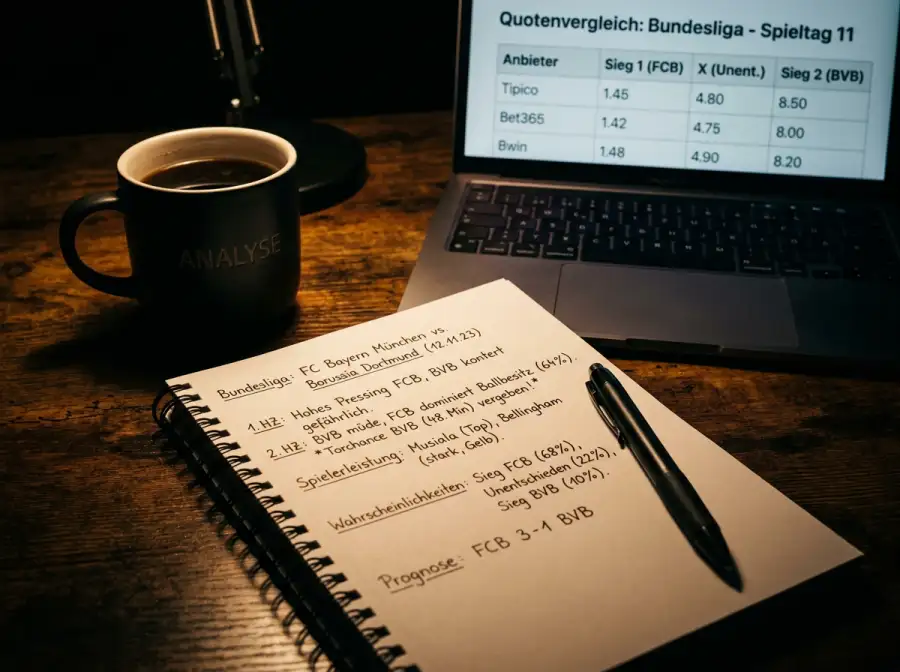 Quotenvergleich: Bundesliga - Spieltag 11
Anbieter Sieg 1 (FCB) X (Unent.) Sieg 2 (BVB)
Tipico 1.45 4.80 8.50
Bet365 1.42 4.75 8.00
Bwin 1.48 4.90 8.20
ANALYSE
Bundesliga: FC Bayern München vs.
Borussia Dortmund (12.11.23)
1. HZ: Hohes Pressing FCB, BVB kontert
gefährlich.
2. HZ: BVB müde, FCB dominiert Ballbesitz (64%).
*Torchance BVB (48. Min) vergeben!*
Spielerleistung: Musiala (Top), Bellingham
(stark, Gelb).
Wahrscheinlichkeiten: Sieg FCB (68%),
Unentschieden (22%),
Sieg BVB (10%).
Prognose: FCB 3-1 BVB